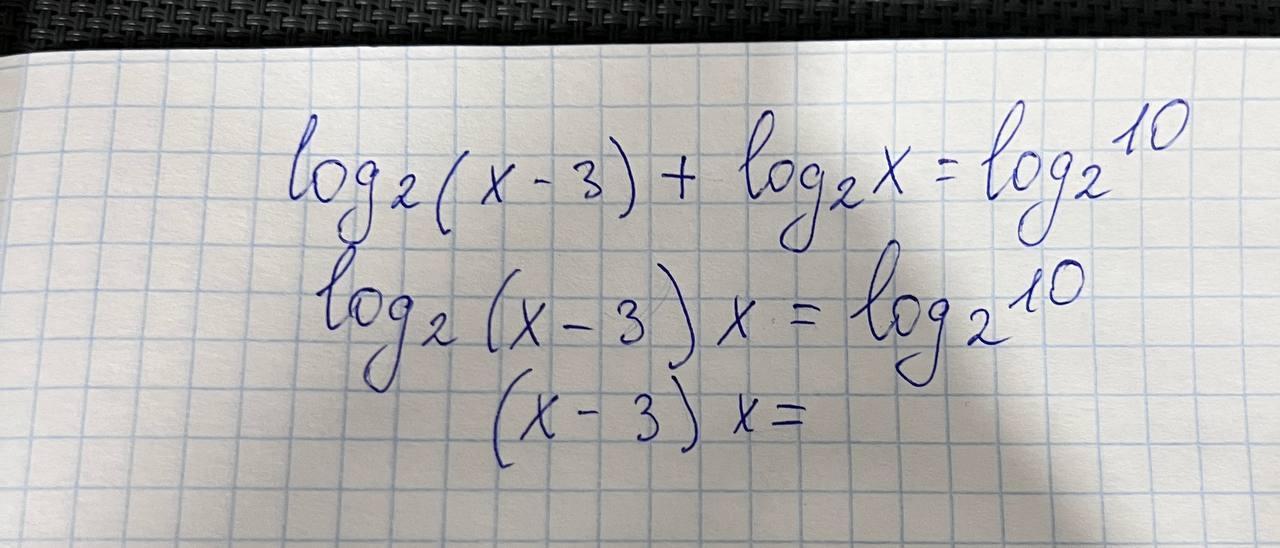 log₂(x-3) + log₂x = log₂10
log₂(x-3)x = log₂10
(x-3)x=